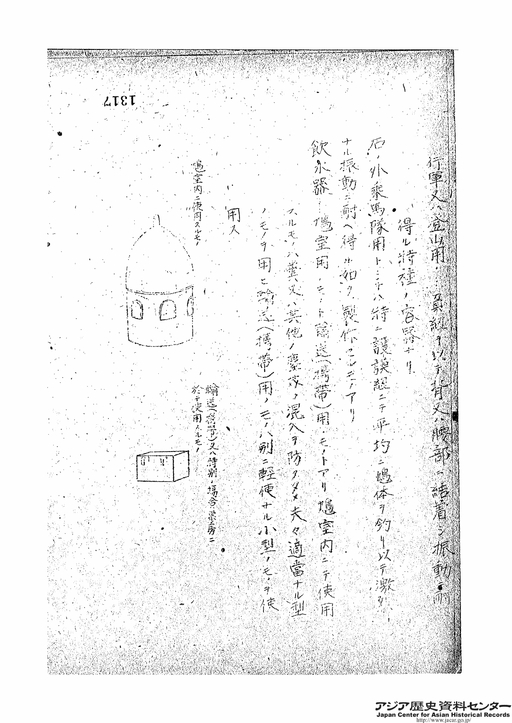 行軍又ハ登山用…系紐ヲ以テ背又腰部ニ結着シ振動ニ耐
得ル特種ノ容器ナリ
右ノ外乗馬隊用トシテハ特ニ護謨紐ニテ平均ニ鳩体ヲ釣リ以テ激烈
ナル振動ニ耐ヘ得ル如ク製作セルモノアリ
飲水器…鳩室用ノモノト輸送(携帯)用ノモノトアリ鳩室内ニテ使用
スルモノハ糞又ハ其他ノ塵埃ノ混入ヲ防グタメ夫々適当ナル型
ノモノヲ用ヒ輸送(携帯)用ノモノハ別ニ軽便ナル小型ノモノヲ使
用ス
鳩室内ニ使用スルモノ
輸送(携帯)又ハ特別ノ場合
於テ使用スルモノ
1317
アジア歴史資料センター
Japan Center for Asian Historical Records
http://www.jacar.go.jp/